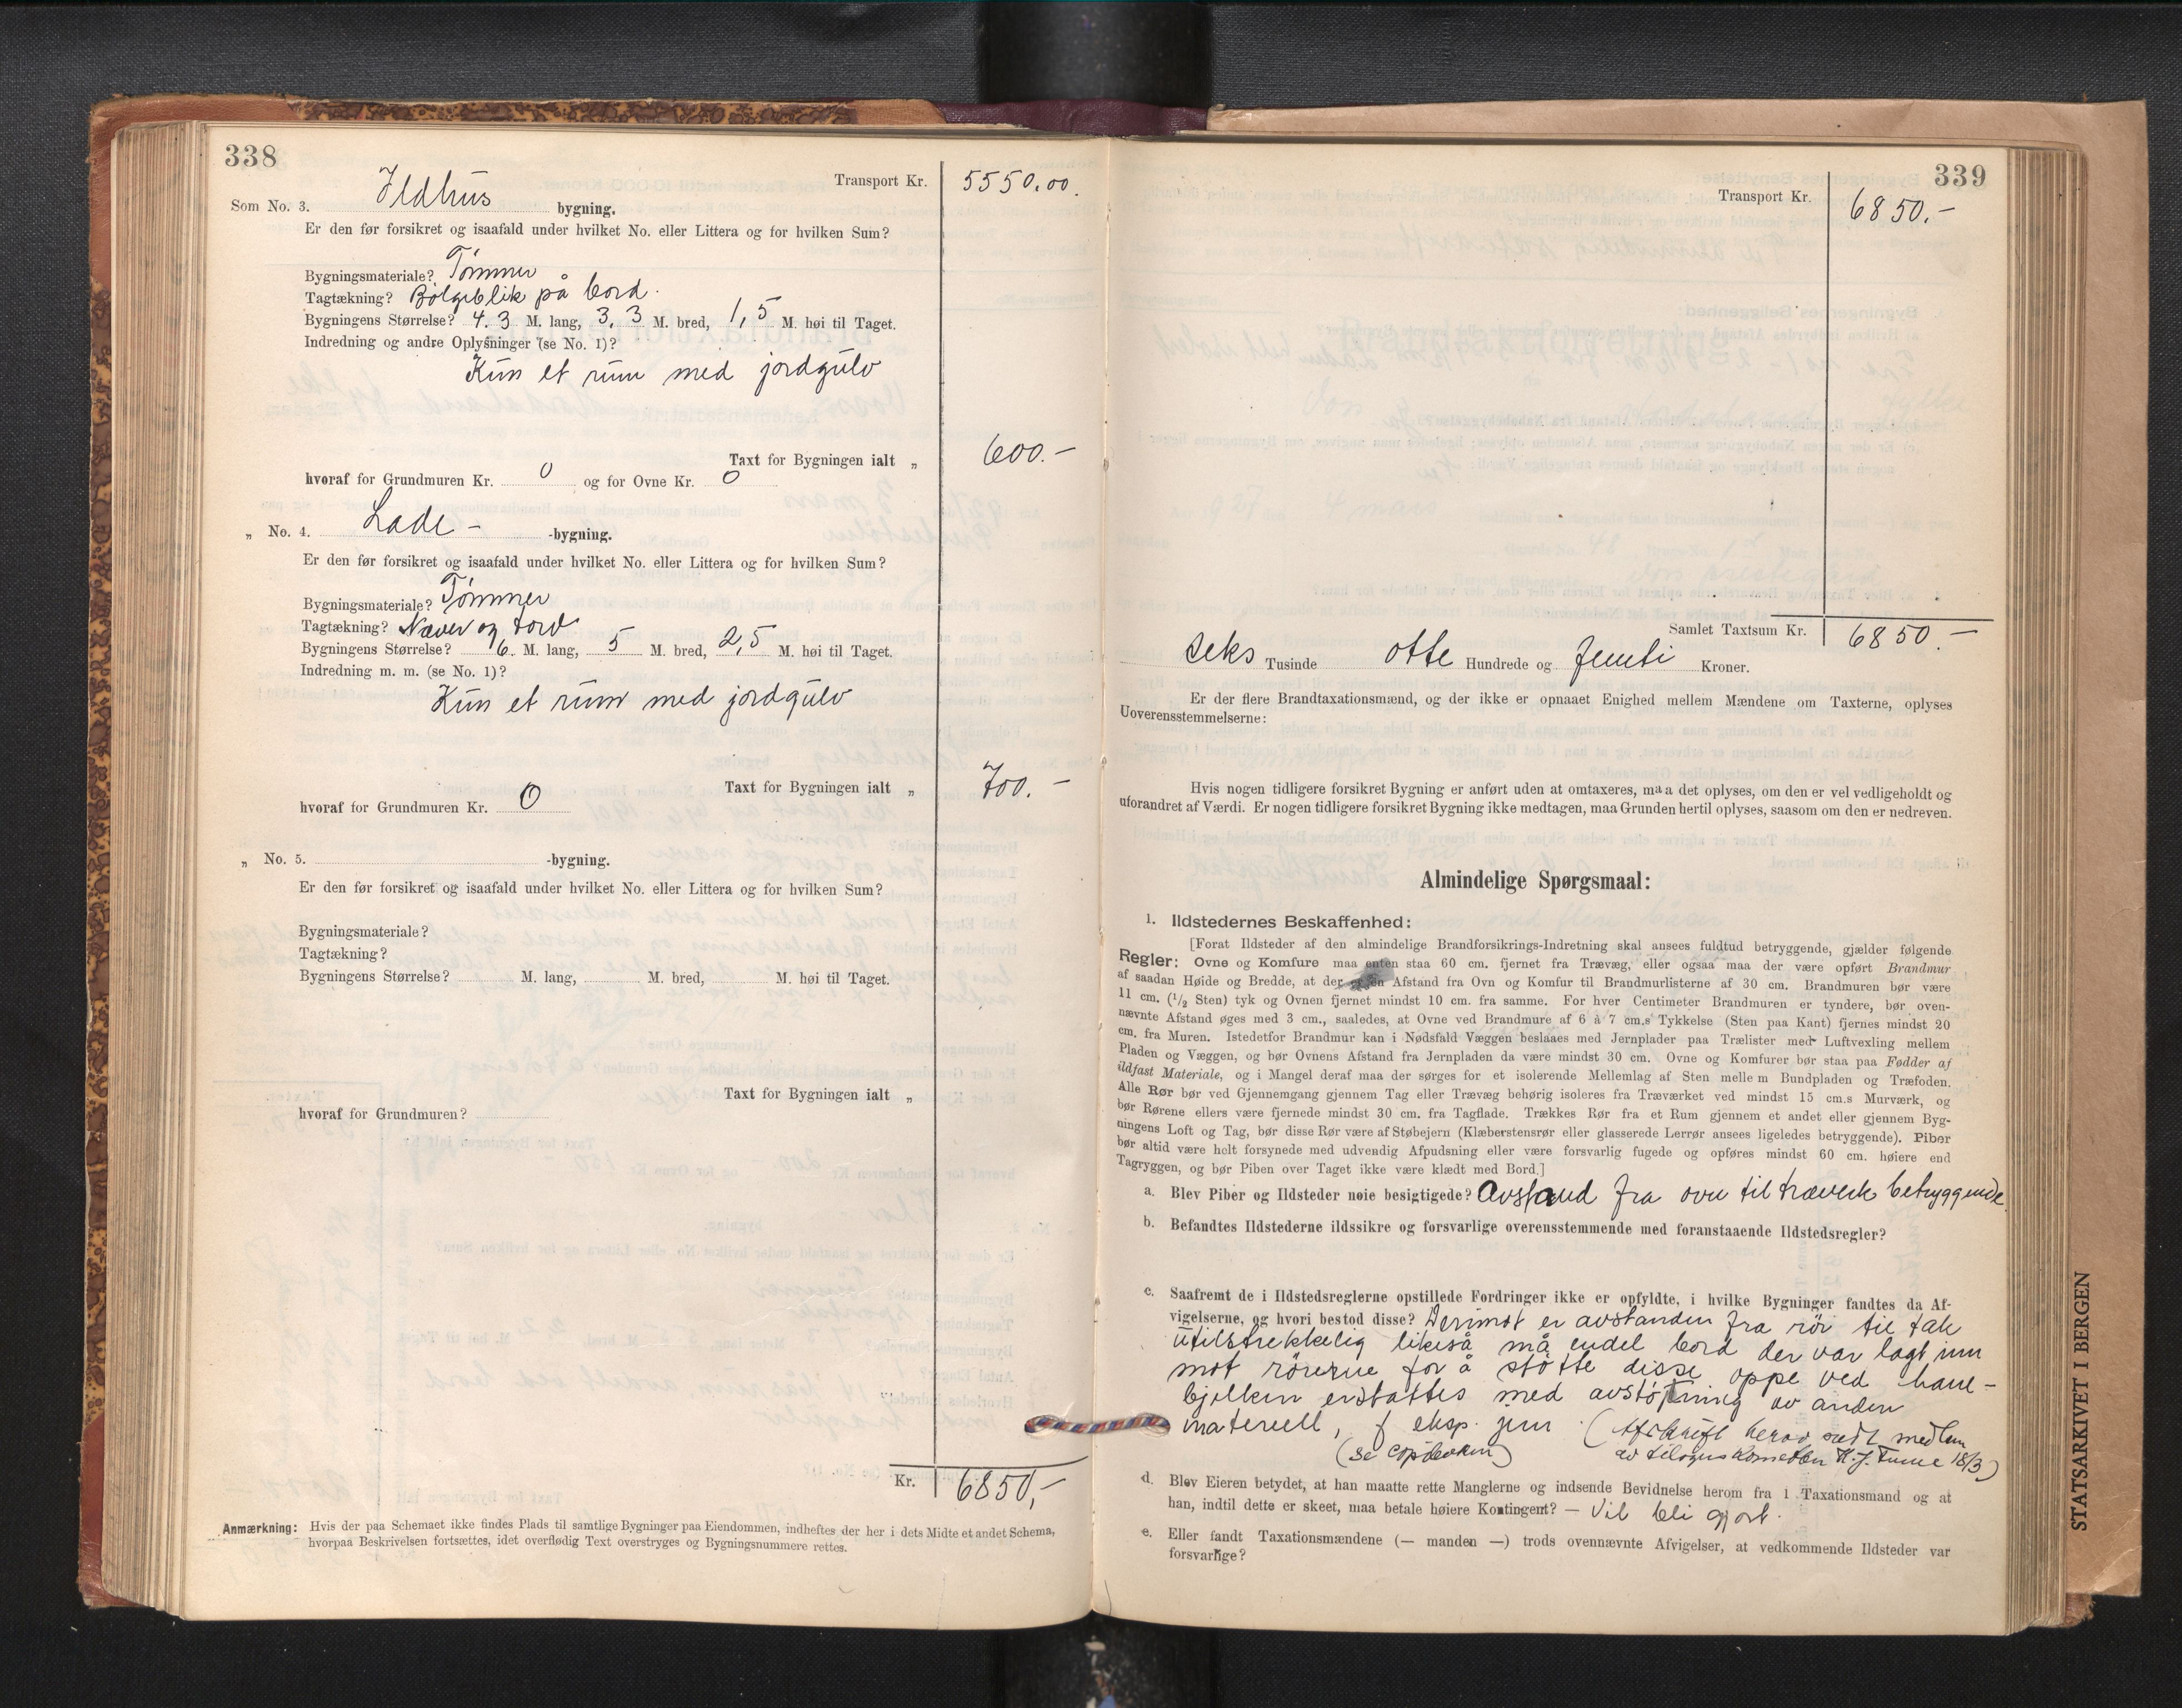 338
Transport Kr. 5550.00.
Som No. 3. Ildhus bygning.
Er den før forsikret og isaafald under hvilket No. eller Littera og for hvilken Sum?
Bygningsmateriale? Tømmer
Tagtækning? Bølgeblik på bord.
Bygningens Størrelse? 4.3 M. lang, 3,3 M. bred, 1,5 M. høi til Taget.
Indredning og andre Oplysninger (se No. 1)?
Kun et rum med jordgulv
Taxt for Bygningen ialt „ 600.-
hvoraf for Grundmuren Kr. 0 og for Ovne Kr. 0
„ No. 4. Lade - -bygning.
Er den før forsikret og isaafald under hvilket No. eller Littera og for hvilken Sum?
Bygningsmateriale? Tømmer
Tagtækning? Næver og torv
Bygningens Størrelse? 6. M. lang, 5 M. bred, 2,5 M. høi til Taget.
Indredning m. m. (se No. 1)?
Kun et rum med jordgulv
Taxt for Bygningen ialt „ 700.-
hvoraf for Grundmuren Kr. 0
„ No. 5. -bygning.
Er den før forsikret og isaafald under hvilket No. eller Littera og for hvilken Sum?
Bygningsmateriale?
Tagtækning?
Bygningens Størrelse? M. lang, M. bred, M. høi til Taget.
Taxt for Bygningen ialt „
hvoraf for Grundmuren?
Kr. 6850,-
Anmærkning: Hvis der paa Schemaet ikke findes Plads til samtlige Bygninger paa Eiendommen, indheftes der her i dets Midte et andet Schema,
hvorpaa Beskrivelsen fortsættes, idet overflødig Text overstryges og Bygningsnummere rettes.
339
Transport Kr. 6850.-
Samlet Taxtsum Kr. 6850.-
seks Tusinde otte Hundrede og femti Kroner.
Er der flere Brandtaxationsmænd, og der ikke er opnaaet Enighed mellem Mændene om Taxterne, oplyses
Uoverensstemmelserne:
Hvis nogen tidligere forsikret Bygning er anført uden at omtaxeres, maa det oplyses, om den er vel vedligeholdt og
uforandret af Værdi. Er nogen tidligere forsikret Bygning ikke medtagen, maa Grunden hertil oplyses, saasom om den er nedreven.
Almindelige Spørgsmaal:
1. Ildstedernes Beskaffenhed:
[Forat Ildsteder af den almindelige Brandforsikrings-Indretning skal ansees fuldtud betryggende, gjælder følgende
Regler: Ovne og Komfure maa enten staa 60 cm. fjernet fra Trævæg, eller ogsaa maa der være opført Brandmur
af saadan Høide og Bredde, at der er en Afstand fra Ovn og Komfur til Brandmurlisterne af 30 cm. Brandmuren bør være
11 cm. (1/2 Sten) tyk og Ovnen fjernet mindst 10 cm. fra samme. For hver Centimeter Brandmuren er tyndere, bør oven-
nævnte Afstand øges med 3 cm., saaledes, at Ovne ved Brandmure af 6 à 7 cm.s Tykkelse (Sten paa Kant) fjernes mindst 20
cm. fra Muren. Istedetfor Brandmur kan i Nødsfald Væggen beslaaes med Jernplader paa Trælister med Luftvexling mellem
Pladen og Væggen, og bør Ovnens Afstand fra Jernpladen da være mindst 30 cm. Ovne og Komfurer bør staa paa Fødder af
ildfast Materiale, og i Mangel deraf maa der sørges for et isolerende Mellemlag af Sten mellem Bundpladen og Træfoden.
Alle Rør bør ved Gjennemgang gjennem Tag eller Trævæg behørig isoleres fra Træværket ved mindst 15 cm.s Murværk, og
bør Rørene ellers være fjernede mindst 30 cm. fra Tagflade. Trækkes Rør fra et Rum gjennem et andet eller gjennem Byg-
ningens Loft og Tag, bør disse Rør være af Støbejern (Klæberstensrør eller glasserede Lerrør ansees ligeledes betryggende). Piber
bør altid være helt forsynede med udvendig Afpudsning eller være forsvarlig fugede og opføres mindst 60 cm. høiere end
Tagryggen, og bør Piben over Taget ikke være klædt med Bord.]
a. Blev Piber og Ildsteder nøie besigtigede? Avstand fra ovn til træverk betryggende.
b. Befandtes Ildstederne ildssikre og forsvarlige overensstemmende med foranstaaende Ildstedsregler?
c. Saafremt de i Ildstedsreglerne opstillede Fordringer ikke er opfyldte, i hvilke Bygninger fandtes da Af-
vigelserne, og hvori bestod disse? Derimot er avstanden fra rör til tak
utilstrekkelig likeså må endel bord der var lagt inn
mot rörerne for å støtte disse oppe ved hane-
bjelken erstattes med avstøtning av anden
materiell, f eksp. jern (Afskrift herav sedt medlem
(se copiboken) av tilsynskomiteen K. J. 18/3)
d. Blev Eieren betydet, at han maatte rette Manglerne og indsende Bevidnelse herom fra 1 Taxationsmand og at
han, indtil dette er skeet, maa betale høiere Kontingent? - Vil bli gjort.
e. Eller fandt Taxationsmændene (— manden —) trods ovennævnte Afvigelser, at vedkommende Ildsteder var
forsvarlige?
STATSARKIVET I BERGEN